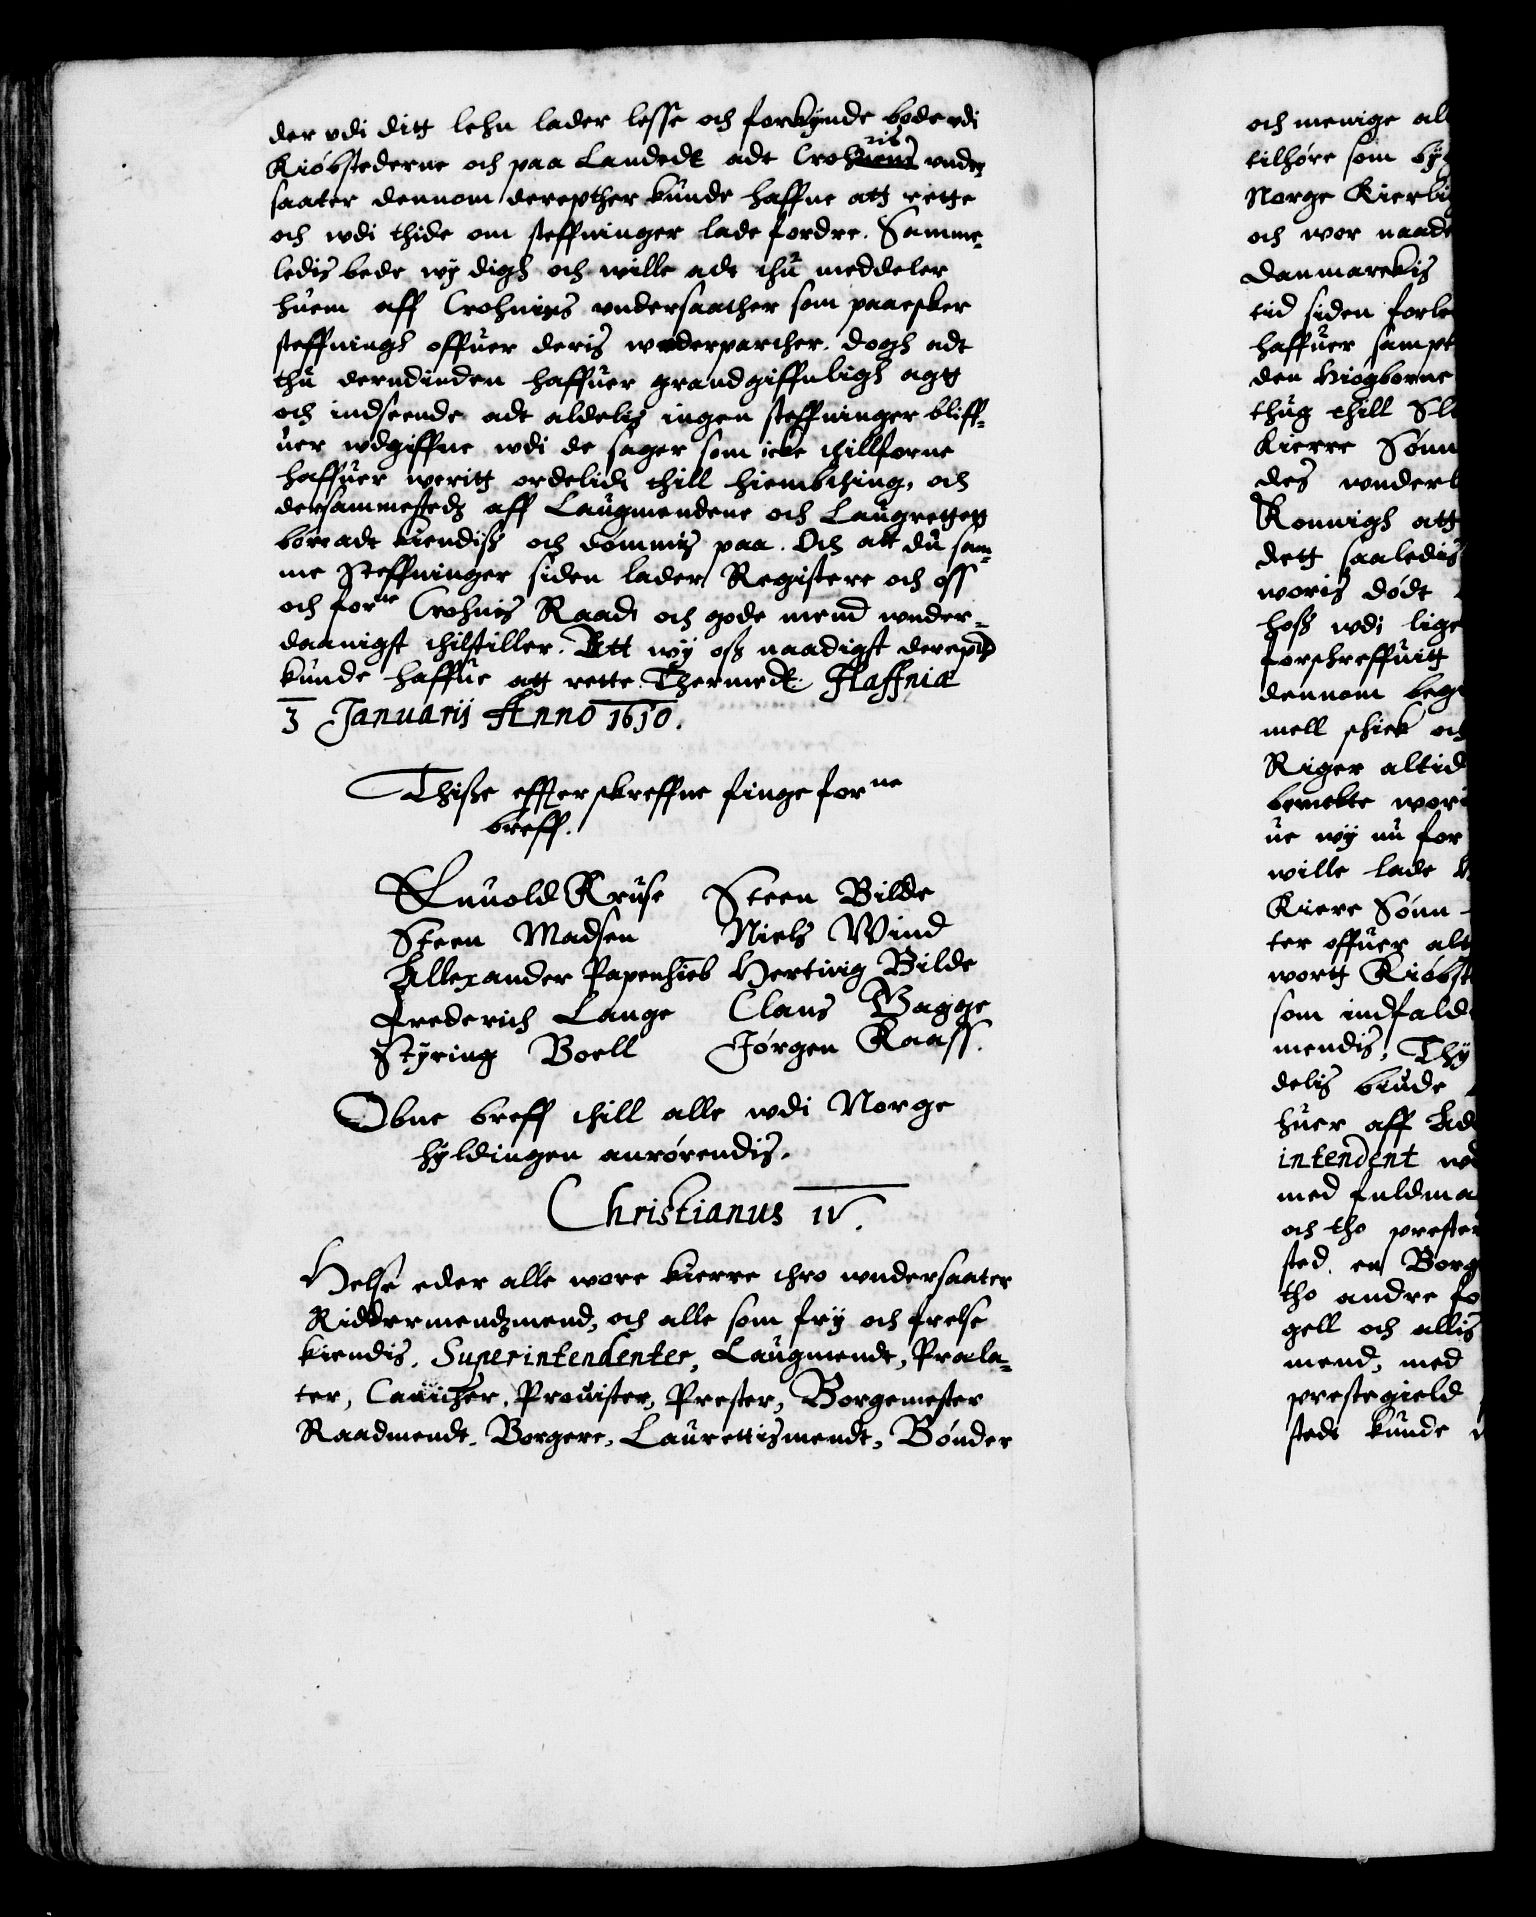 der udi ditt lehn lader lesse och forkynde bode udi
Kiøbstederne och paa Landedt adt Crohnens nis under
saater dennom derepther kunde haffue att rette
och wdi thide om steffninger lade fordre. Samme-
ledis bede wy digh och wille adt thu meddeler
huem aff Crohnens undersaather som paaesker
steffningh offuer deris wederparther. dogh adt
thu derudinden haffuer grandgiffueligh agtt
och indseende adt aldelis ingen steffninger bliff-
uer wdgiffne wdi de sager som icke thillforne
haffuer weritt ordelidt thill hiembthing, och
dersammestedz aff Laugmendene och Laugrettett
børe adt kiendiß och dømmis paa. Och att du sam-
me Steffninger siden lader Registere och oss
och forne Crohnis Raadt och gode mend wnder-
daanigst thilstiller. Att wy oß naadigst derepther
kunde haffue att rette. Thermedt Haffniæ
3 Januarij Anno 1610.
Thiße effterskreffne finge forne
breff.
Enuold Kruse Steen Bilde
Steen Madsen Niels Wind
Allexander Papenheimb Hertuig Bilde
Frederich Lange Claus Bagge
Styring Boell Jørgen Kaass.
Obne breff thill alle wdi Norge
hyldingen anrørendis.
Christianus IV.
Helse eder alle wore kierre thro wndersaater
Riddermendzmend, och alle som fry och frelse
kiendis, Superintendenter, Laugmendt, Præla-
ter, Canicher, Prouister, Prester, Borgemester
Raadmendt, Borgere, Laurettismendt, Bønder
och menige al
tilhøre som by
Norge Kierli
och wor naade
Danmarckis
tid siden forle
haffuer sampt
den Høgborne
thug thill Sle
Kierre Sønn
des wnder
Konnigh att
dett saaledis
woris dødt
hoß wdi lige
forschreffuitt
dennom beg
mell schick och
Riger altid
bemelte wor
ue wy nu for
wille lade
Kiere Sønn
ter offuer alt
wortt Kiøbst
som indfald
mendis, Thy
delis biude
huer aff Ad
intendent wd
med fuldma
och tho prester
sted. en Borg
tho andre fo
gell och allis
mend, med
prestegield
stedt kunde